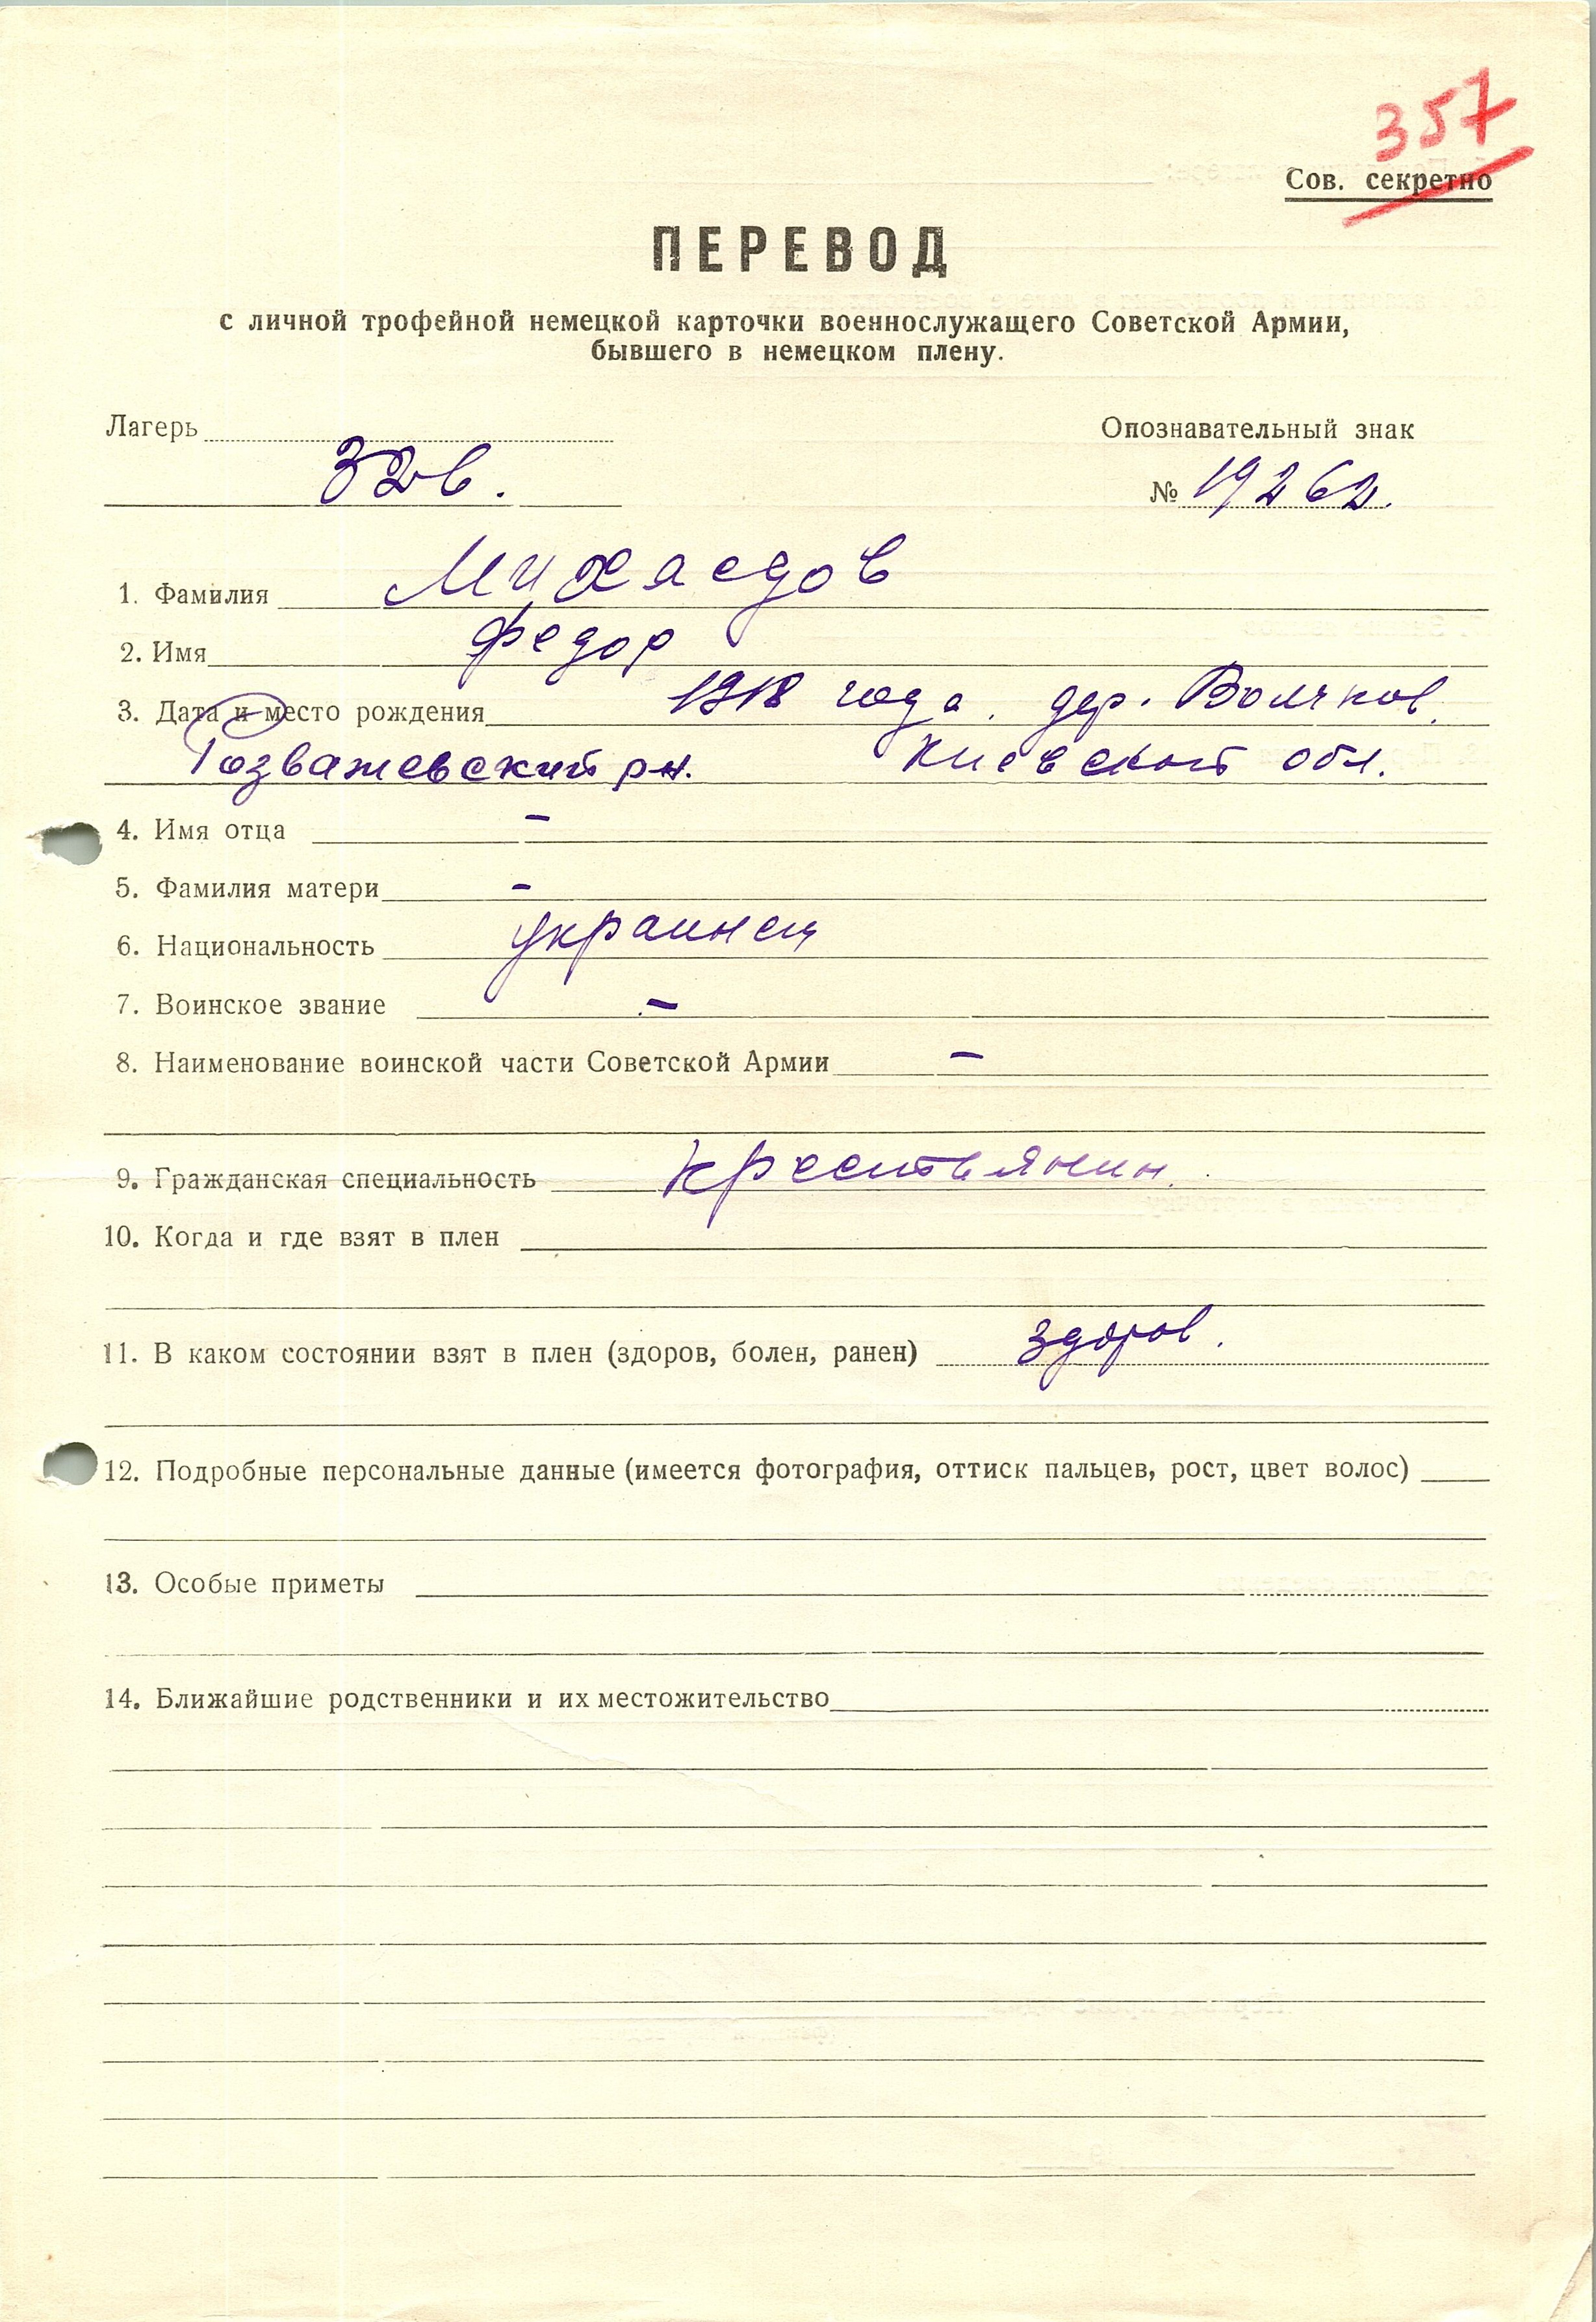 357
Сов. секретно
ПЕРЕВОД
с личной трофейной немецкой карточки военнослужащего Советской Армии,
бывшего в немецком плену.
Лагерь
Опознавательный знак
326.
№ 19262.
1. Фамилия Михаедов
2. Имя Федор
3. Дата и место рождения 1918 года. дер. Волчков.
Розважевский р-н. Киевской обл.
4. Имя отца –
5. Фамилия матери –
6. Национальность украинец
7. Воинское звание –
8. Наименование воинской части Советской Армии –
9. Гражданская специальность крестьянин.
10. Когда и где взят в плен
11. В каком состоянии взят в плен (здоров, болен, ранен) здоров.
12. Подробные персональные данные (имеется фотография, оттиск пальцев, рост, цвет волос)
13. Особые приметы
14. Ближайшие родственники и их местожительство